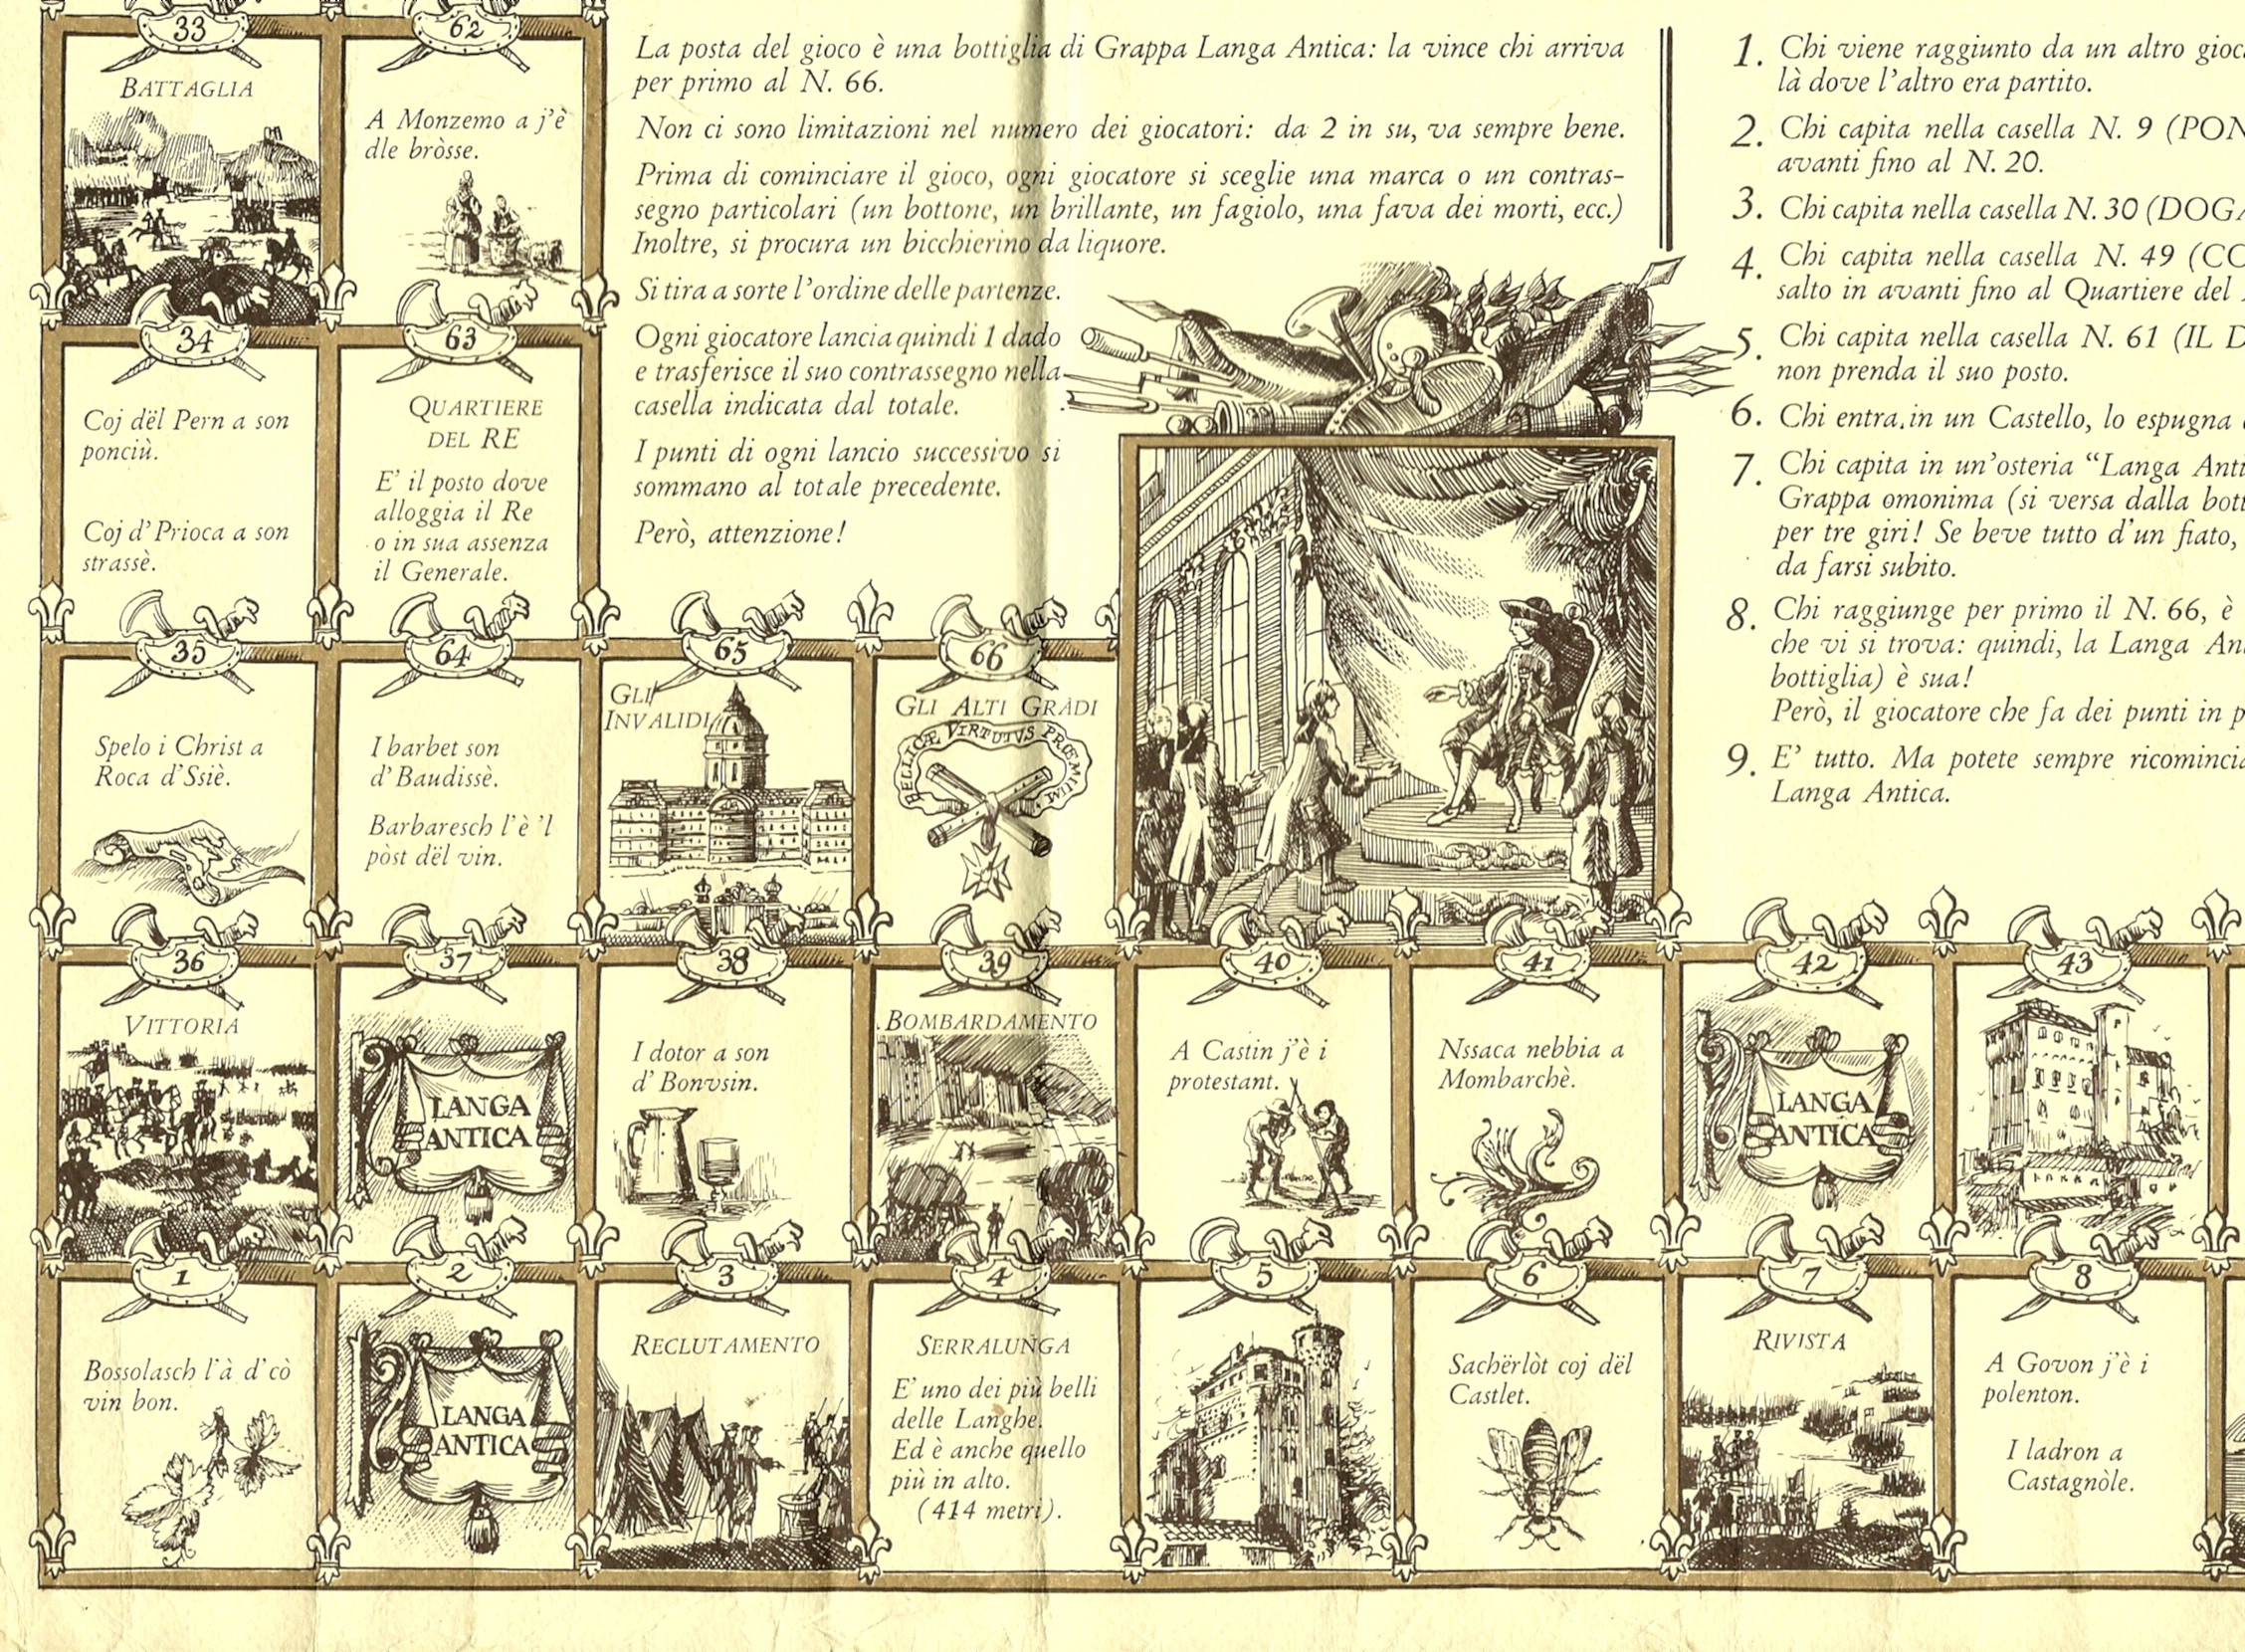 33
BATTAGLIA
62
A Monzemo a j'è
dle bròsse.
34
Coj dël Pern a son
ponciù.
Coj d'Prioca a son
strassè.
63
QUARTIERE
DEL RE
E' il posto dove
alloggia il Re
o in sua assenza
il Generale.
La posta del gioco è una bottiglia di Grappa Langa Antica: la vince chi arriva
per primo al N. 66.
Non ci sono limitazioni nel numero dei giocatori: da 2 in su, va sempre bene.
Prima di cominciare il gioco, ogni giocatore si sceglie una marca o un contras-
segno particolari (un bottone, un brillante, un fagiolo, una fava dei morti, ecc.)
Inoltre, si procura un bicchierino da liquore.
Si tira a sorte l'ordine delle partenze.
Ogni giocatore lancia quindi 1 dado
e trasferisce il suo contrassegno nella
casella indicata dal totale.
I punti di ogni lancio successivo si
sommano al totale precedente.
Però, attenzione!
1. Chi viene raggiunto da un altro gioc
là dove l'altro era partito.
2. Chi capita nella casella N. 9 (PON
avanti fino al N. 20.
3. Chi capita nella casella N. 30 (DOGA
4. Chi capita nella casella N. 49 (CO
salto in avanti fino al Quartiere del
5. Chi capita nella casella N. 61 (IL D
non prenda il suo posto.
6. Chi entra in un Castello, lo espugna
7. Chi capita in un'osteria "Langa Anti
Grappa omonima (si versa dalla bott
per tre giri! Se beve tutto d'un fiato,
da farsi subito.
8. Chi raggiunge per primo il N. 66, è
che vi si trova: quindi, la Langa An
bottiglia) è sua!
Però, il giocatore che fa dei punti in p
9. E' tutto. Ma potete sempre ricomincia
Langa Antica.
35
Spelo i Christ a
Roca d'Ssiè.
64
I barbet son
d'Baudissè.
Barbaresch l'è 'l
pòst dël vin.
65
GLI
INVALIDI
66
GLI ALTI GRADI
BELLICÆ VIRTUTVS PRŒMIUM
36
VITTORIA
37
LANGA
ANTICA
38
I dotor a son
d'Bonvsin.
39
BOMBARDAMENTO
40
A Castin j'è i
protestant.
41
Nssaca nebbia a
Mombarchè.
42
LANGA
ANTICA
43
1
Bossolasch l'à d'cò
vin bon.
2
LANGA
ANTICA
3
RECLUTAMENTO
4
SERRALUNGA
E' uno dei più belli
delle Langhe.
Ed è anche quello
più in alto.
(414 metri).
5
6
Sachërlòt coj dël
Castlet.
7
RIVISTA
8
A Govon j'è i
polenton.
I ladron a
Castagnòle.